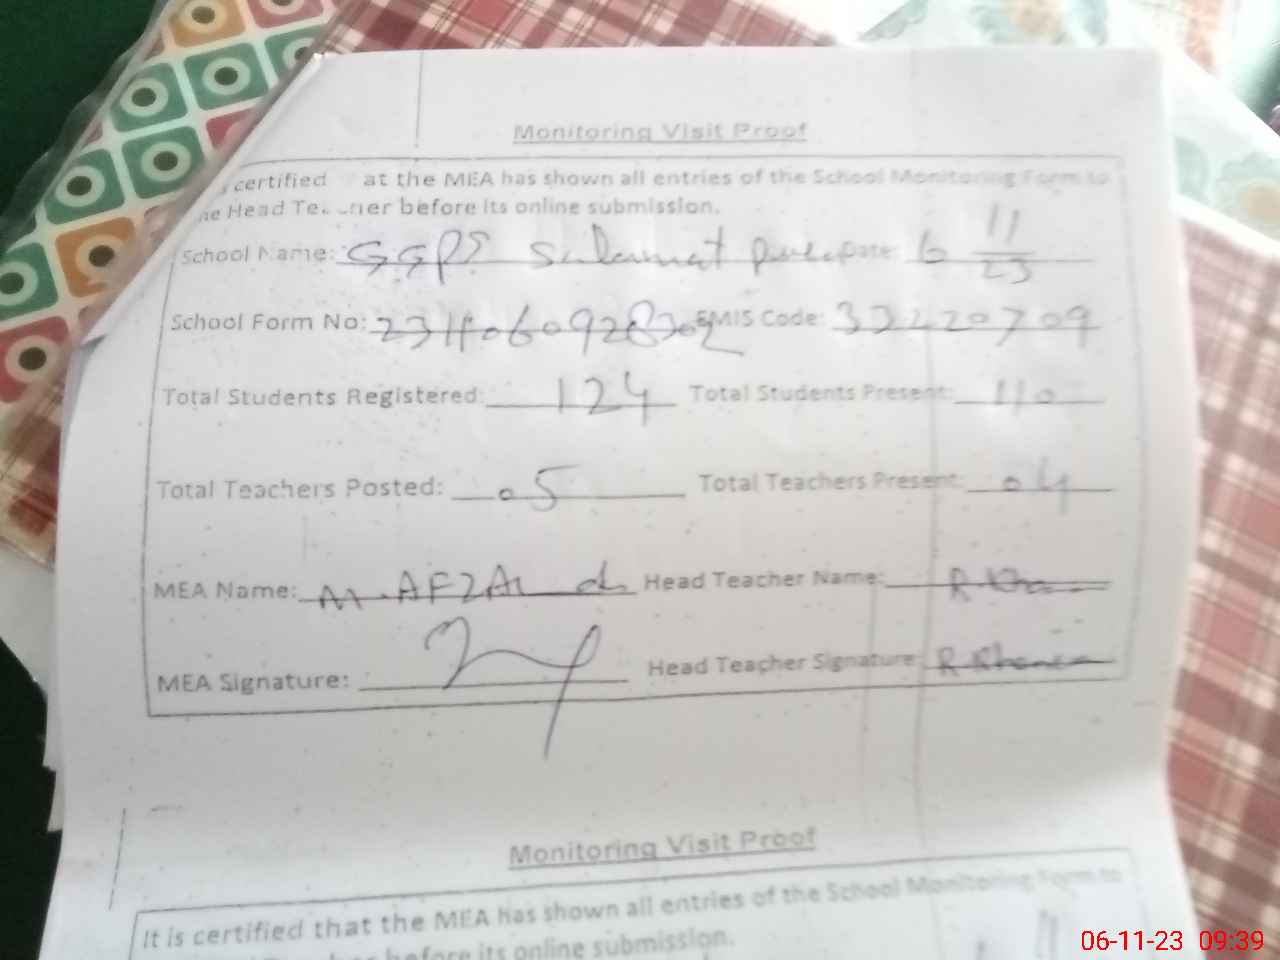 Monitoring Visit Proof
certified at the MEA has shown all entries of the School Monitoring Form to
Head before its online submission.
School Name: GGPS Salamat Date: 6 11/23
School Form No: EMIS Code: 33220709
Total Students Registered: 124 Total Students Present: 110
Total Teachers Posted: 05 Total Teachers Present: 04
MEA Name: M. AFZAL Head Teacher Name: R
MEA Signature: Head Teacher Signature: R
Monitoring Visit Proof
It is certified that the MEA has shown all entries of the School Monitoring Form to
before its online submission.
06-11-23 09:39